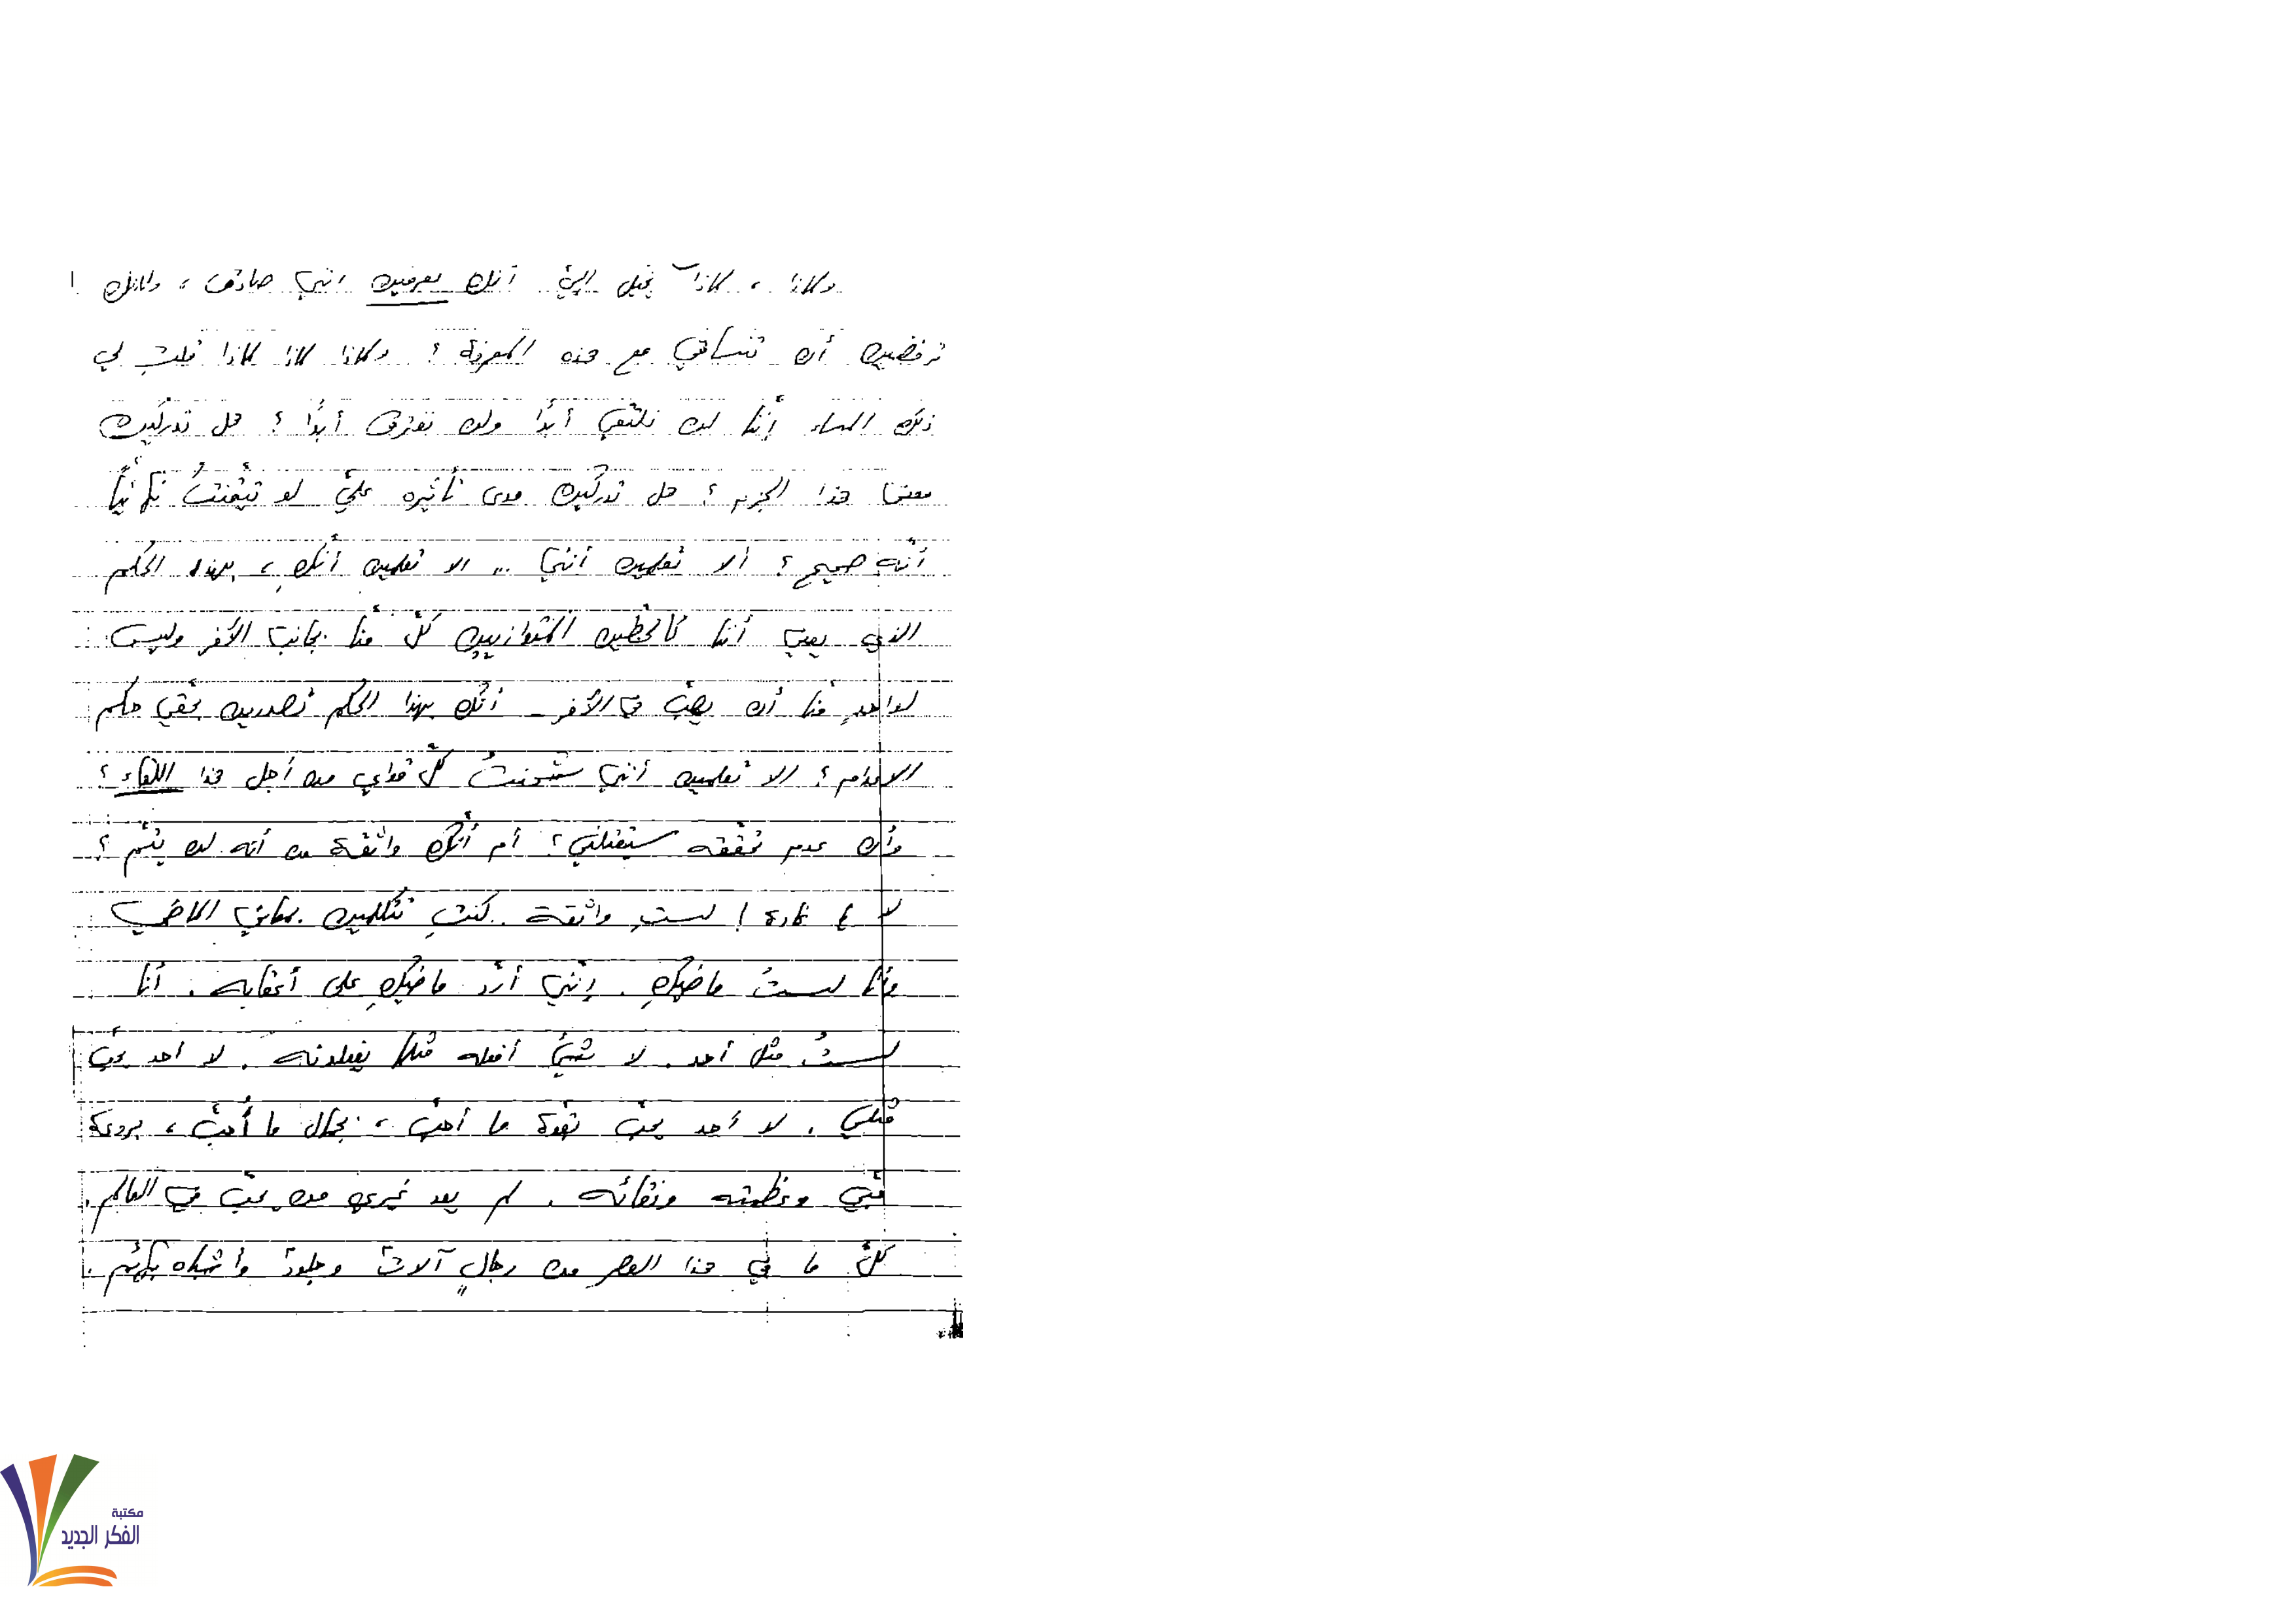 ولماذا ، لماذا يخيل إليّ أنك تعرفين انني صادق ، ولكنك
ترفضين أن تنساقي مع هذه المعرفة ؟ ولماذا لماذا لماذا قلتِ لي
ذلك المساء إننا لن نلتقي أبدًا ولن نفترق أبدًا ؟ هل تدركين
معنى هذا الجزم ؟ هل تدركين مدى تأثيره عليّ لو تيقنتُ نهائيًا
أنّه صحيح ؟ ألا تعلمين أنني .. الا تعلمين أنكِ ، بهذا الحكم
الذي يعني أننا كالخطين المتوازيين كلّ منا بجانب الآخر وليس
لواحدٍ منا أن يصبّ في الآخر - أنك بهذا الحكم تصدرين بحقي حكم
الاعدام ؟ الا تعلمين أنني شحنتُ كلّ قواي من أجل هذا اللقاء ؟
وأن عدم تحققه سيقتلني ؟ أم أنّكِ واثقة من أنه لن يتمّ ؟
لا يا غادة ! لستِ واثقة . كنتِ تتكلمين بمقاييس الماضي
وأنا لستُ ماضيكِ . إنّني أردّ ماضيكِ على أعقابه . أنا
لستُ مثل أحد . لا شيء أفعله مثلما يفعلونه . لا أحد يحبّ
مثلي . لا أحد يحبّ بقوة ما أحبّ ، بجمال ما أُحبّ ، بروعة
حبّي وعظمته ونقائه . لم يعد غيري من يحبّ في العالم .
كلّ ما في هذا العصر من رجالٍ آلاتٌ وجلودٌ وأشباه بهائم .
مكتبة
الفكر الجديد